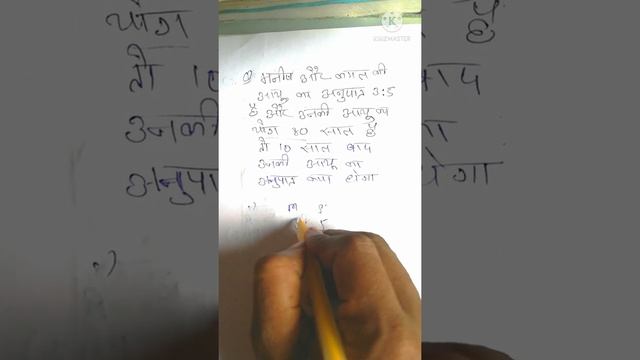 Q मनीष और कमल की
आयु का अनुपात 3:5
है और उनकी आयु का
योग 80 साल है
तो 10 साल बाद
उनकी आयु का
अनुपात क्या होगा
m
5
KINEMASTER